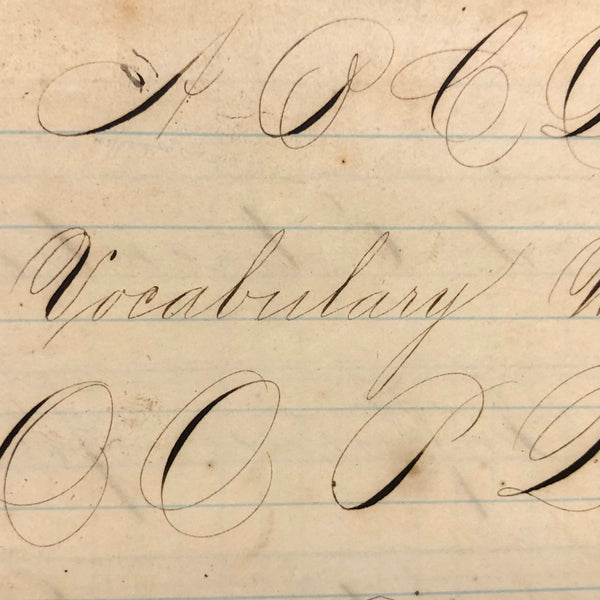 A B C
Vocabulary
O O P